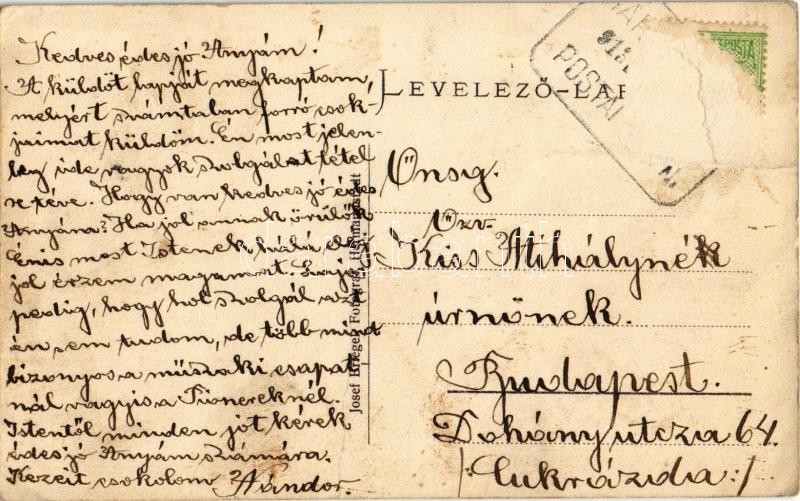 Kedves édes jó Anyám!
A küldöt lapját megkaptam,
melyért számtalan forró csok-
jaimat küldöm. Én most jelen-
leg ide vagyok szolgálat tétel
re téve. Hogy van kedves jó édes
Anyám? Ha jól annak örülök
Énis most Istenek hála elég
jol érzem magamat. Lajos
pedig, hogy hol szolgál azt
én sem tudom, de több mind
bizonyos a műszaki csapat
nál vagyis a Pionereknél.
Istentől minden jót kérek
édes jó Anyám számára.
Kezeit csokolom Nándor.
Josef Krieger, Fotograf, Hermagor
LEVELEZŐ-LAP
913
POSTAI
N.
Önsg.
Özv.
Kiss Mihálynék
úrnőnek.
Budapest.
Dohány utcza 64.
/: Cukrázda :/